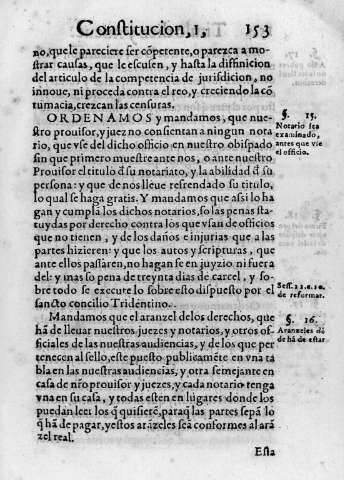 Constitucion, 1, 153
no, que le pareciere ser cõpetente, o parezca a mo-
strar causas, que le escusen, y hasta la diffinicion
del articulo de la competencia de jurisdicion, no
innoue, ni proceda contra el reo, y creciendo la cõ
tumacia, crezcan las censuras.
ORDENAMOS y mandamos, que nue-
stro prouisor, y juez no consientan a ningun nota
rio, que vse del dicho officio en nuestro obispado
sin que primero muestre ante nos, o ante nuestro
Prouisor el titulo d̃ su notariato, y la abilidad d̃ su
persona: y que de nos lleue refrendado su titulo,
lo qual se haga gratis. Y mandamos que assi lo ha
gan y cumplã los dichos notarios, so las penas sta-
tuydas por derecho contra los que vsan de officios
que no tienen, y de los daños e injurias que a las
partes hizieren: y que los autos y scripturas, que
ante ellos passaren, no hagan fe en juyzio ni fuera
del: y mas so pena de treynta dias de carcel, y so-
bre todo se execute lo sobre esto dispuesto por el
sancto concilio Tridentino.
Mandamos que el aranzel de los derechos, que
hã de lleuar nuestros juezes y notarios, y otros of-
ficiales de las nuestras audiencias, y de los que per
tenecen al sello, este puesto publicamẽte en vna ta
bla en las nuestras audiencias, y otra semejante en
casa de nr̃o prouisor y juezes, y cada notario tenga
vna en su casa, y todas esten en lugares donde los
puedan leer los q̃ quisierẽ, paraq̃ las partes sepã lo
q̃ hã de pagar, y estos arãzeles seã conformes al arã
zel real.
Esta
§. 15.
Notario sea
examinado,
antes que vse
el officio.
Sess. 22. c. 10.
de reformat.
§. 16.
Aranzeles dõ
de hã de estar